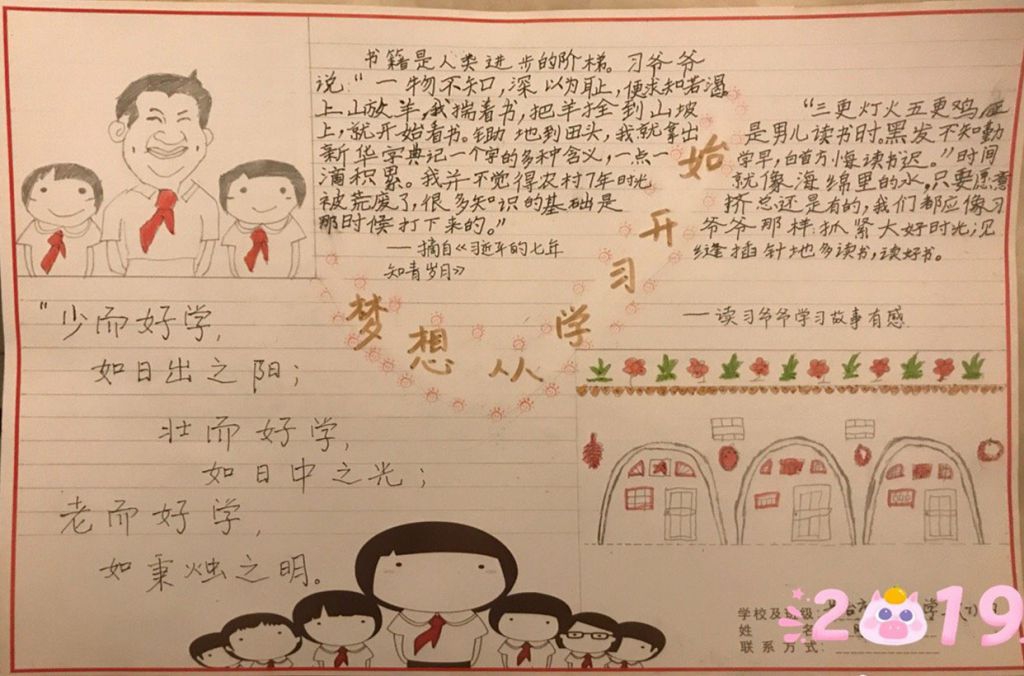 书籍是人类进步的阶梯。习爷爷
说："一物不知,深以为耻,便求知若渴
上山放羊,我揣着书,把羊拴到山坡
上,就开始看书。锄地到田头,我就拿出
新华字典记一个字的多种含义,一点一
滴积累。我并不觉得农村7年时光
被荒废了,很多知识的基础是
那时候打下来的。"
——摘自《习近平的七年
知青岁月》
"三更灯火五更鸡,正
是男儿读书时。黑发不知勤
学早,白首方悔读书迟。"时间
就像海绵里的水,只要愿意
挤总还是有的,我们都应像习
爷爷那样抓紧大好时光,见
缝插针地多读书,读好书。
——读习爷爷学习故事有感
梦想从学习开始
"少而好学,
如日出之阳;
壮而好学,
如日中之光;
老而好学,
如秉烛之明。
学校及班级:
姓 名
联系方式:
2019